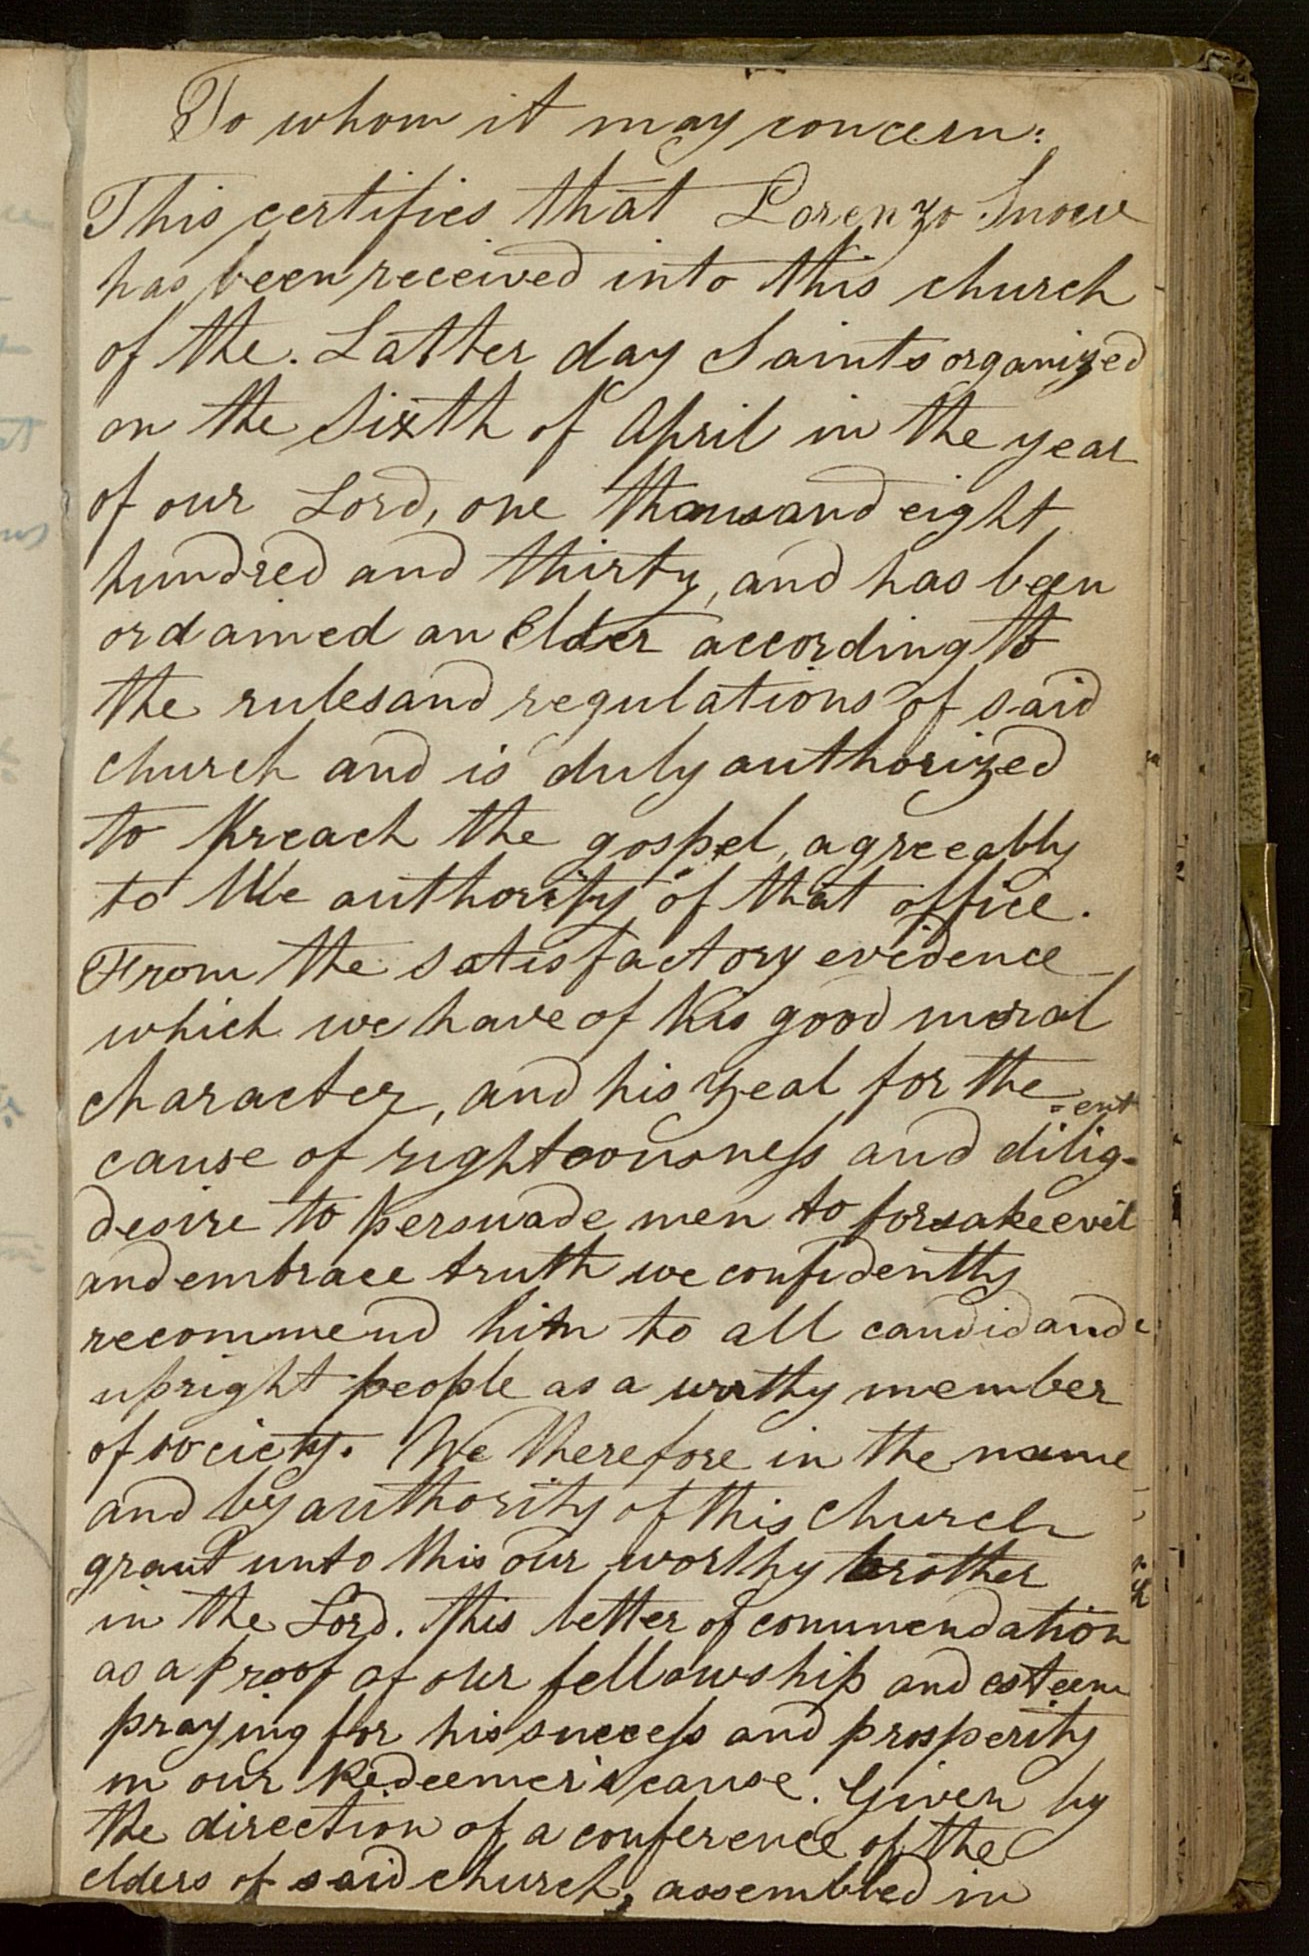 To whom it may concern:
This certifies that Lorenzo Snow
has been received into this church
of the. Latter day Saints organized
on the Sixth of April in the year
of our Lord, one thousand eight
hundred and thirty, and has been
ordained an Elder according to
the rules and regulations of said
church and is duly authorized
to preach the gospel, agreeably
to the authority of that office.
From the satisfactory evidence
which we have of his good moral
character, and his zeal for the
cause of righteousness and dilig-
=ent
desire to perswade men to forsake evil
and embrace truth we confidently
recommend him to all candid and
upright people as a worthy member
of society. We therefore in the name
and by authority of this church
grant unto this our worthy brother
in the Lord. this letter of commendation
as a proof of our fellowship and esteem
praying for his success and prosperity
in our Redeemer's cause. Given by
the direction of a conference of the
elders of said church, assembled in